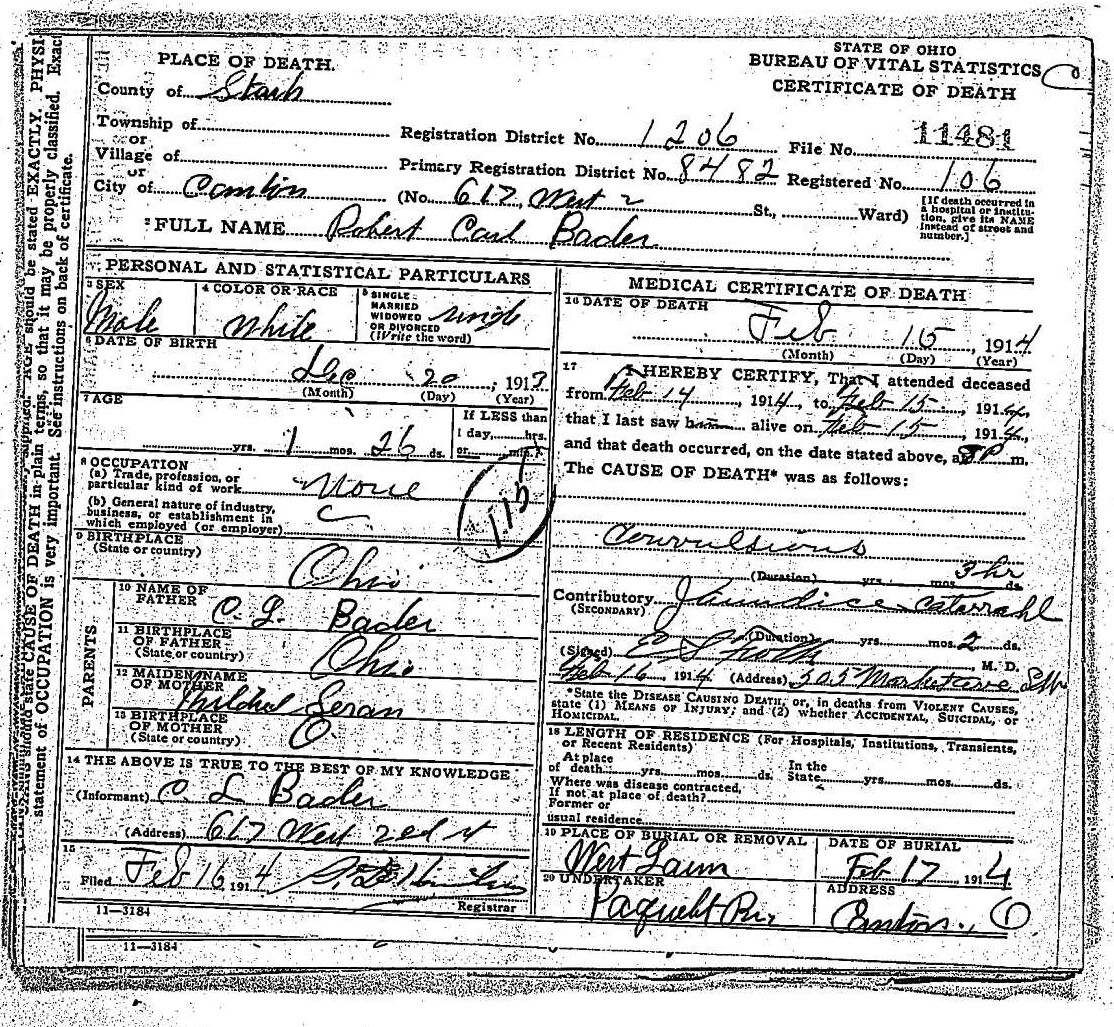 STATE OF OHIO
BUREAU OF VITAL STATISTICS
CERTIFICATE OF DEATH
PLACE OF DEATH.
County of Stark
Township of
or
Village of
or
City of Canton
Registration District No. 1206 File No. 11481
Primary Registration District No. 8482 Registered No. 106
(No. 617 West 2 St., Ward)
[If death occurred in a hospital or institution, give its NAME instead of street and number.]
2 FULL NAME Robert Carl Bader
PERSONAL AND STATISTICAL PARTICULARS
3 SEX
Male
4 COLOR OR RACE
White
5 SINGLE
MARRIED
WIDOWED
OR DIVORCED
(Write the word)
single
6 DATE OF BIRTH
Dec 20, 1913
(Month) (Day) (Year)
7 AGE
yrs. 1 mos. 26 ds.
If LESS than
1 day, hrs.
or min.
8 OCCUPATION
(a) Trade, profession, or
particular kind of work None
(b) General nature of industry,
business, or establishment in
which employed (or employer)
115
9 BIRTHPLACE
(State or country)
Ohio
PARENTS
10 NAME OF
FATHER
C. L. Bader
11 BIRTHPLACE
OF FATHER
(State or country)
Ohio
12 MAIDEN NAME
OF MOTHER
Mildred Seran
13 BIRTHPLACE
OF MOTHER
(State or country)
O
14 THE ABOVE IS TRUE TO THE BEST OF MY KNOWLEDGE
(Informant) C L Bader
(Address) 617 West 2ed st
15
Filed Feb 16 1914
Registrar
11—3184
MEDICAL CERTIFICATE OF DEATH
16 DATE OF DEATH
Feb 15, 1914
(Month) (Day) (Year)
17 I HEREBY CERTIFY, That I attended deceased
from Feb 14, 1914, to Feb 15, 1914,
that I last saw him alive on Feb 15, 1914,
and that death occurred, on the date stated above, at 8P m.
The CAUSE OF DEATH* was as follows:
Convulsions
(Duration) yrs. mos. 3 hr ds.
Contributory Jaundice Catarrahl
(SECONDARY)
(Duration) yrs. mos. 2 ds.
(Signed) M. D.
Feb 16, 1914 (Address) 305 Market Ave SW
*State the DISEASE CAUSING DEATH, or, in deaths from VIOLENT CAUSES,
state (1) MEANS OF INJURY; and (2) whether ACCIDENTAL, SUICIDAL, or
HOMICIDAL.
18 LENGTH OF RESIDENCE (For Hospitals, Institutions, Transients,
or Recent Residents)
At place
of death yrs. mos. ds.
In the
State yrs. mos. ds.
Where was disease contracted,
If not at place of death?
Former or
usual residence
19 PLACE OF BURIAL OR REMOVAL
West Lawn
DATE OF BURIAL
Feb 17 1914
20 UNDERTAKER
ADDRESS
Canton, O
11—3184
should be stated EXACTLY. PHYSI
CAUSE OF DEATH in plain terms, so that it may be properly classified. Exact
statement of OCCUPATION is very important. See instructions on back of certificate.